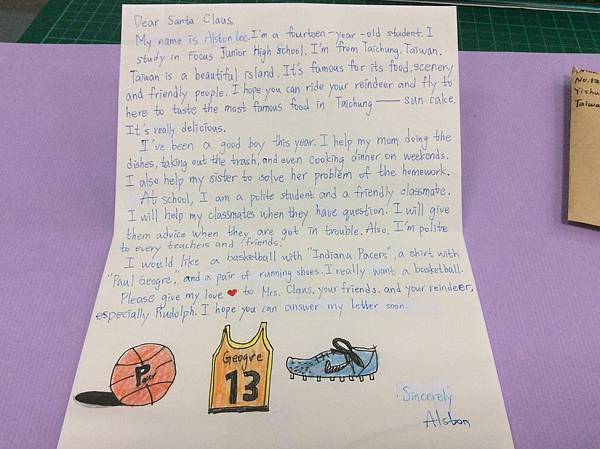 Dear Santa Claus,
My name is Alston Lee. I'm a fourteen-year-old student. I
study in Focus Junior High School. I'm from Taichung, Taiwan.
Taiwan is a beautiful island. It's famous for its food, scenery
and friendly people. I hope you can ride your reindeer and fly to
here to taste the most famous food in Taichung — sun cake.
It's really delicious.
I've been a good boy this year. I help my mom doing the
dishes, taking out the trash, and even cooking dinner on weekends.
I also help my sister to solve her problem of the homework.
At school, I am a polite student and a friendly classmate.
I will help my classmates when they have question. I will give
them advice when they are got in trouble. Also, I'm polite
to every teachers and friends.
I would like a basketball with "Indiana Pacers", a shirt with
"Paul Geogre," and a pair of running shoes. I really want a basketball.
Please give my love ❤ to Mrs. Claus, your friends, and your reindeer,
especially Rudolph. I hope you can answer my letter soon.
Pacer
Geogre
13
Sincerely
Alston
No.12
Yishu
Taiwa